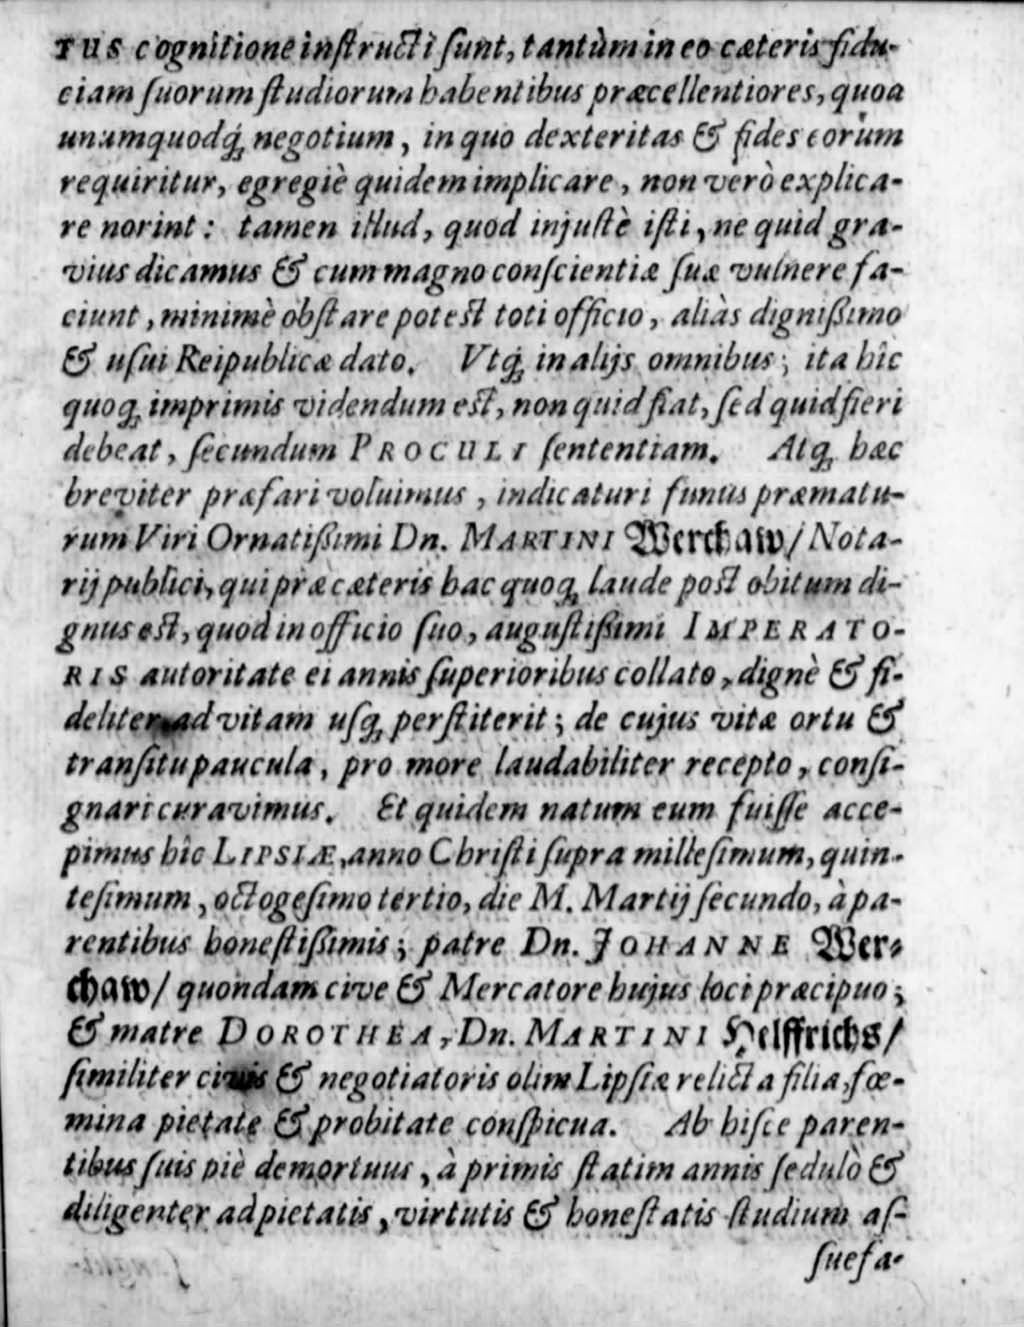 TUS cognitione inſtructi ſunt, tantùm in eo cæteris fidu-
ciam ſuorum ſtudiorum habentibus præcellentiores, quod
unumquodq́; negotium, in quo dexteritas & fides eorum
requiritur, egregiè quidem implicare, non verò explica-
re norint: tamen illud, quod injuſtè iſti, ne quid gra-
vius dicamus & cum magno conſcientiæ ſuæ vulnere fa-
ciunt, minimè obſtare poteſt toti officio, aliàs digniſsimo
& uſui Reipublicæ dato. Vtq́; in alijs omnibus; ita hîc
quoq; imprimis videndum eſt, non quid fiat, ſed quid fieri
debeat, ſecundum PROCULI ſententiam. Atq; hæc
breviter præfari voluimus, indicaturi funus præmatu-
rum Viri Ornatiſsimi Dn. MARTINI Werchaw/ Nota-
rij publici, qui præ cæteris hac quoq; laude poſt obitum di-
gnus eſt, quod in officio ſuo, auguſtiſsimi IMPERATO-
RIS autoritate ei annis ſuperioribus collato, dignè & fi-
deliter ad vitam uſq; perſtiterit; de cujus vitæ ortu &
tranſitu paucula, pro more laudabiliter recepto, conſi-
gnari curavimus. Et quidem natum eum fuiſſe acce-
pimus hîc LIPSIÆ, anno Chriſti ſupra milleſimum, quin-
teſimum, octogeſimo tertio, die M. Martij ſecundo, à pa-
rentibus honeſtiſsimis; patre Dn. JOHANNE Wer-
chaw/ quondam cive & Mercatore hujus loci præcipuo;
& matre DOROTHEA, Dn. MARTINI Helffrichs/
ſimiliter civis & negotiatoris olim Lipſiæ relicta filia, fœ-
mina pietate & probitate conſpicua. Ab hiſce paren-
tibus ſuis piè demortuus, à primis ſtatim annis ſedulò &
diligenter ad pietatis, virtutis & honeſtatis ſtudium aſ-
ſuefa-